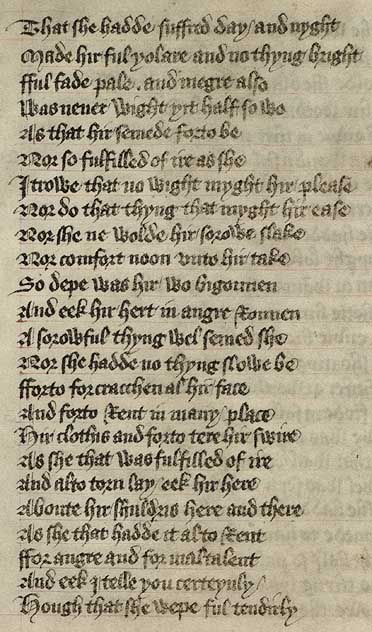 That she hadde suffred day / and nyght
Made hir ful yolare and no thyng bright
fful fade pale . and megre also
Was never wight yit half so wo
As that hir semede forto be
Nor so fulfilled of ire as she
I trowe that no wight myght hir please
Nor do that thyng that myght hir ease
Nor she ne wolde hir sorowe slake
Nor comfort noon unto hir take
So depe was hir wo bigonnen
And eek hir hert in angre ronnen
A sorowful thyng wel semed she
Nor she hadde no thyng slowe be
fforto forcracchen al hir face
And forto Rent in many / place
Hir clothis and forto tere hir swire
As she that was fulfilled of ire
And al to torn lay / eek hir here
Aboute hir shuldris here and there
As she that hadde it al to Rent
ffor angre and for maltalent
And eek I telle you certeynly /
Hough that she wepe ful tendirly